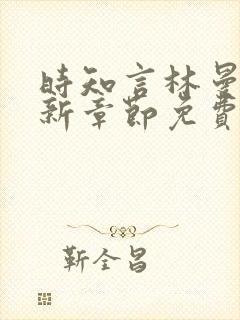 時知言林曼
新章節免費
靳全昌